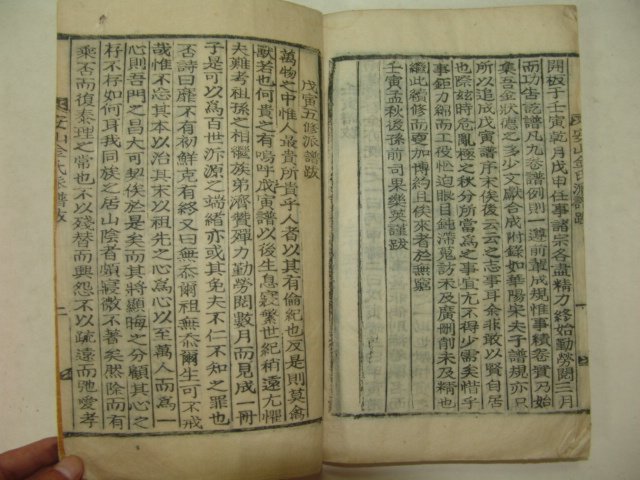 開板于壬寅乾月戊申任事諸宗各盡精力終始勤勞閱三月
而功告訖譜凡九卷譜例則一遵前輩成規惟事積卷實乃始
集吾金狀德之多少文獻合成附錄如華陽宋夫子譜規亦只
所以追成戊寅譜序末俟後云云之志事耳余非敢以賢自居
也際茲時危亂極之秋分所當為之事宜尤不得少需矣惜乎
事鉅力綿工役忙迫眼目鈍滯蒐訪未及廣刪削未及精也
繼此續修而更加博約且俟來者於無窮
壬寅孟秋後孫前司果樂英謹跋
安山金氏派譜跋
戊寅五修派譜跋
萬物之中惟人最貴所貴乎人者以其有倫紀也反是則莫禽
獸若也何貴之有嗚呼戊寅譜以後生息寢繁世紀稍遠尤懼
夫難考祖孫之相繼族弟濟贊殫力勤勞閱數月而見成一冊
子是可以為百世派源之端緒亦或其免夫不仁不知之罪也
否詩曰靡不有初鮮克有終又曰無忝爾祖無忝爾生可不戒
哉惟不忘其本以治其末以祖先之心為心至以萬人而為一
心則吾門之昌大可契俟於是矣而其將顯晦之分顧其心之
存不存如何耳我同族之居山陰者頗寢微不著矣然除而有
乘否而復泰理之常也不以殘替而興怨不以疏遠而弛愛孝
安山金氏派譜跋